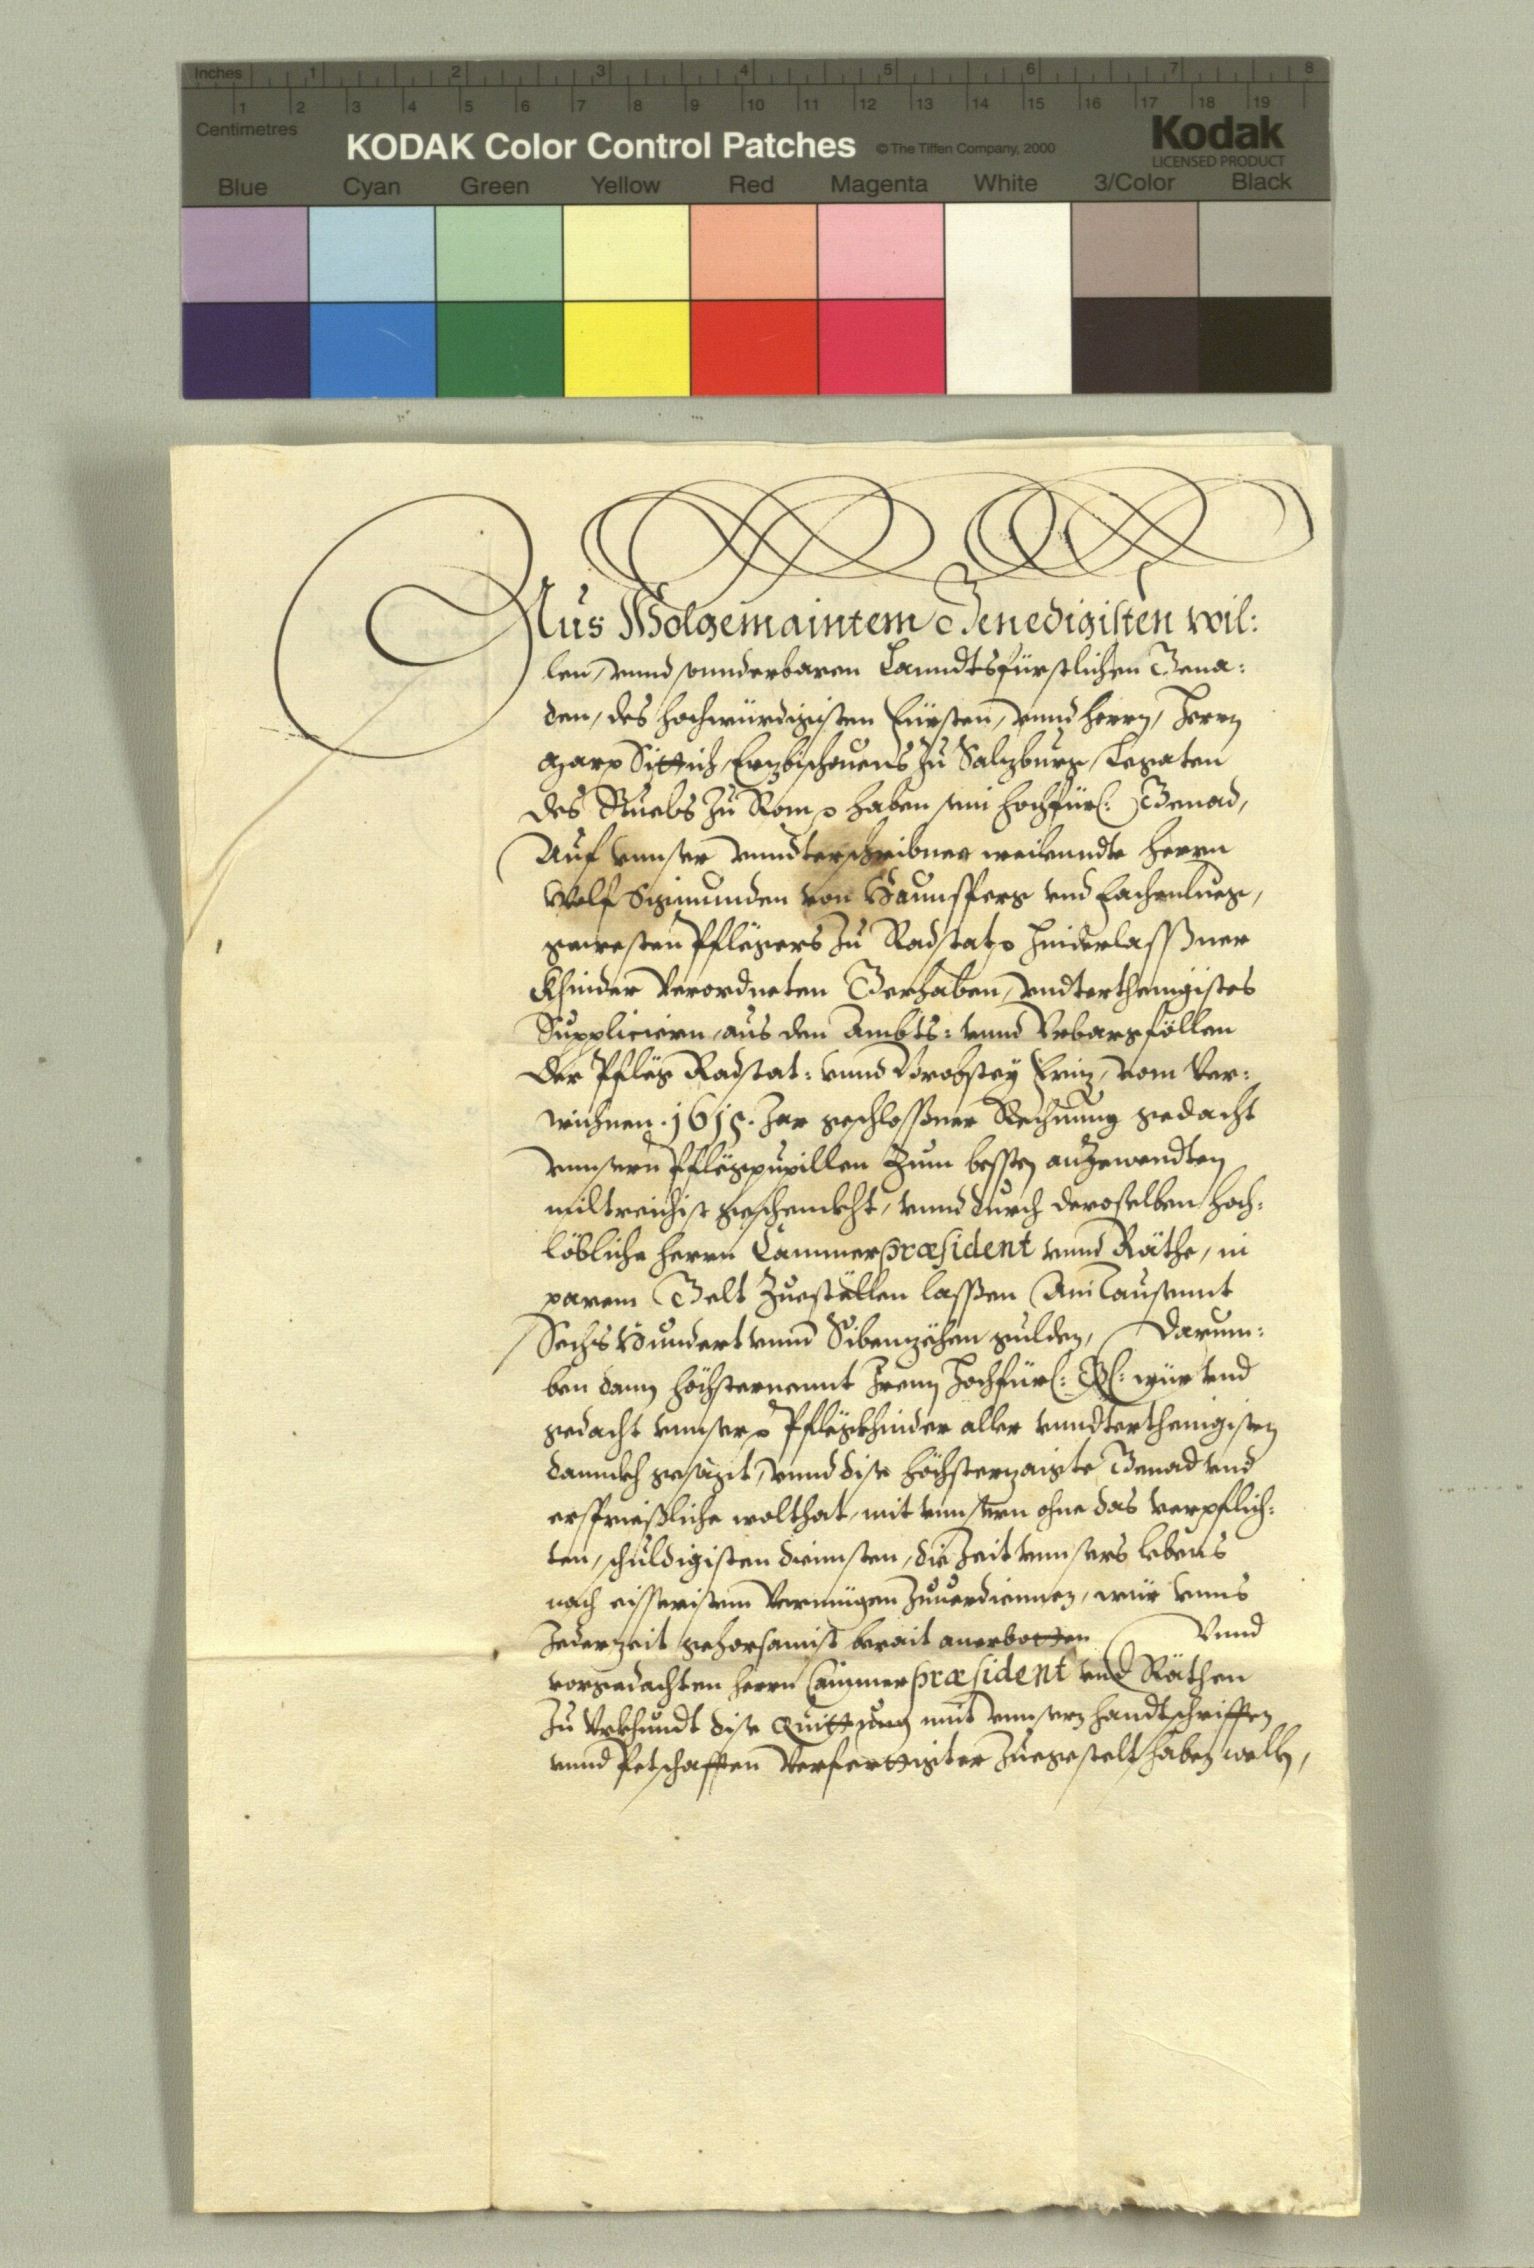 Inches 1 2 3 4 5 6 7 8
1 2 3 4 5 6 7 8 9 10 11 12 13 14 15 16 17 18 19
Centimetres
KODAK Color Control Patches © The Tiffen Company, 2000 Kodak
LICENSED PRODUCT
Blue Cyan Green Yellow Red Magenta White 3/Color Black
Aus Wolgemaintem Genedigisten wil:
len, vnnd sonnderbaren Lanndtsfürstlichen Gena:
den, des hochwürdigisten Fürsten, vnnd Herrn, Herrn
Marx Sittich, Erzbischouens zu Salzburg, Legaten
des Stuels zu Rom haben sein hochfürl: Genad,
Auf vnnser vnndterschribner weilenndt Herrn
Wolf Sigmunden von Haunsperg vnd Vachenlueg,
gewesten Pflegers zu Radstat hinderlassner
Khinder verordneten Gerhaben, vndterthenigistes
Suppliciern, aus den Ambts: vnnd Vrbarsföllen
der Pfleg Radstat: vnnd Brobstey Friz, vom ver:
wichnen .1615. Jar geschlossner Rechnung gedacht
vnnsern Pflegpupillen zum bessten anzewendten
miltreichist geschenckht, vnnd durch deroselben hoch:
löbliche Herrn Cammerpræsident vnnd Räthe, in
parem Gelt zuestöllen lassen Ain Tausennt
Sechs Hundert vnnd Sibenzehen gulden, Darum:
ben dann höchsternennt Iren Hochfürl: Gl: wür vnd
gedacht vnnsere Pflegkhinder aller vnndterthenigisten
dannckh gesagt, vnnd dise höchsterzaigte Genad vnd
ersprießliche wolthat, mit vnnsern ohne das verpflich:
ten, schuldigisten diennsten, die Zeit vnnsers lebens
nach eisseristem vermügen zuuerdiennen, wür vnns
Jederzeit gehorsamist berait anerbotten Vnnd
vorgedachten Herrn Cammerpræsident vnd Räthen
zu Vrkhundt dise Quittung mit vnnsern Handtschrifften
vnnd Petschafften verferttigter zuegestelt haben wellen,